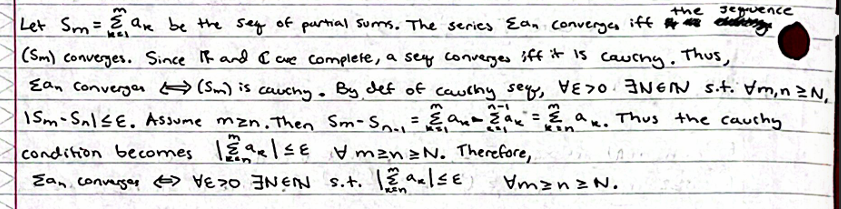 Let Sm = m∑k=1 ak be the seq of partial sums. The series ∑an converges iff the sequence
(Sm) converges. Since ℝ and ℂ are complete, a seq converges iff it is cauchy. Thus,
∑an converges ⟺ (Sm) is cauchy. By def of cauchy seq, ∀ε>0 ∃N∈ℕ s.t. ∀m,n≥N,
|Sm-Sn|≤ε. Assume m≥n. Then Sm-Sn-1 = m∑k=1 ak - n-1∑k=1 ak = m∑k=n ak. Thus the cauchy
condition becomes |m∑k=n ak|≤ε ∀m≥n≥N. Therefore,
∑an converges ⟺ ∀ε>0 ∃N∈ℕ s.t. |m∑k=n ak|≤ε ∀m≥n≥N.